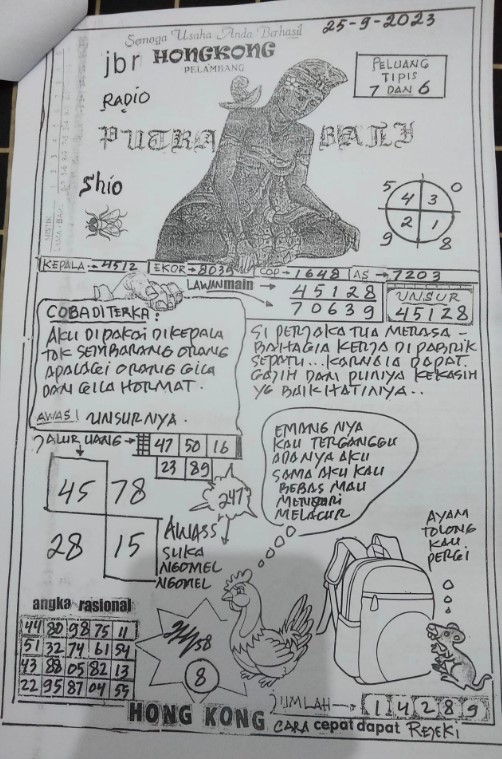 Semoga Usaha Anda Berhasil
25-9-2023
jbr HONGKONG
PELAMBANG
RADIO
PELUANG
TIPIS
7 DAN 6
PUTRA BALI
Shio
5 0
4 3
2 1
9 8
KEPALA → 4512 EKOR → 8039 COP → 1648 AS → 7203
LAWAN main → 45128
70639
UNSUR
45128
COBA DITERKA :
AKU DIPAKAI DIKEPALA
TAK SEMBARANG ORANG
APALAGI ORANG GILA
DAN GILA HORMAT.
AWAS! UNSURNYA.
SI PERJAKA TUA MERASA -
BAHAGIA KERJA DI PABRIK
SEPATU... KARNA IA DAPAT
GAJIH DAN PUNYA KEKASIH
YG BAIK HATINYA..
JALUR UANG → 47 50 16
23 89
45 78
28 15
247
EMANG NYA
KAU TERGANGGU
ADA NYA AKU
SAMA AKU KAU
BEBAS MAU
MENCARI
MELACUR
AWASS
SUKA
NGOMEL
NGOMEL
AYAM
TOLONG
KAU
PERGI
angka rasional
44 80 98 75 11
51 32 74 61 54
43 88 05 82 13
22 95 87 04 55
8
JUMLAH → 1 4 2 8 9
HONG KONG CARA cepat dapat REJEKI